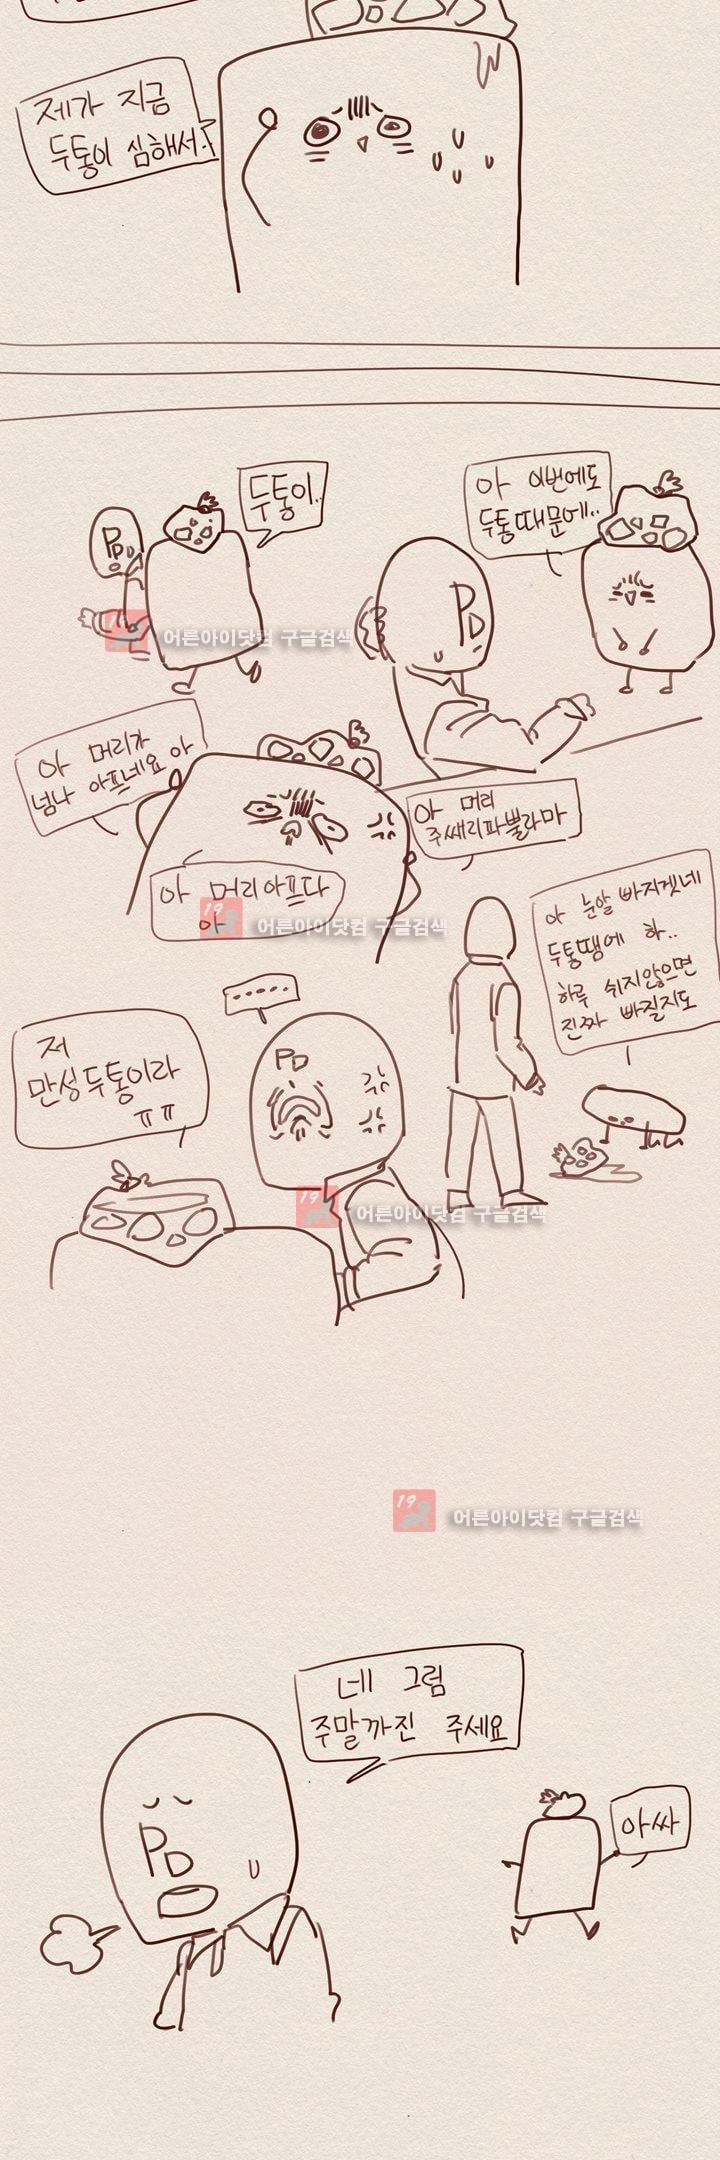 제가 지금
두통이 심해서..
두통이..
PD
아 이번에도
두통때문에..
PD
어른아이닷컴 구글검색
아 머리가
넘나 아프네요 아
아 머리
주쌔리파뿔라마
아 머리아프다
아
19
어른아이닷컴 구글검색
아 눈알 빠지겟네
두통땜에 하..
하루 쉬지않으면
진짜 빠질지도
......
저
만성두통이라
ㅠㅠ
PD
19
어른아이닷컴 구글검색
19
어른아이닷컴 구글검색
네 그럼
주말까진 주세요
PD
아싸